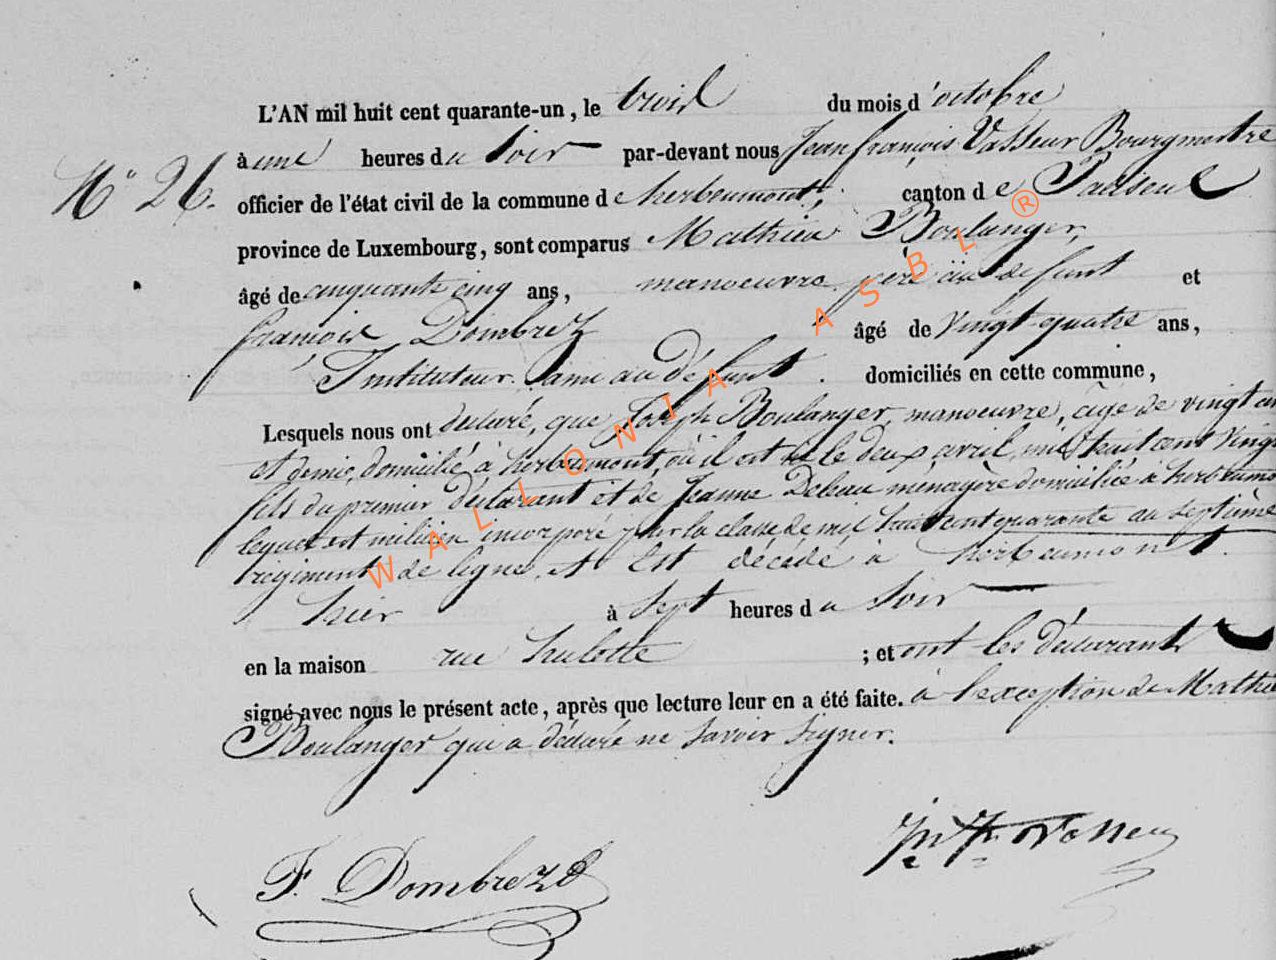 L'AN mil huit cent quarante-un, le trois du mois d'octobre
à une heures du soir par-devant nous Jean françois Vasseur Bourgmestre
N° 26.
officier de l'état civil de la commune de herbeumont, canton de Paliseul
province de Luxembourg, sont comparus Mathieu Boulanger,
âgé de cinquante cinq ans, manoeuvre père au défunt et
françois Dombrez âgé de vingt-quatre ans,
Instituteur ami au défunt. domiciliés en cette commune,
Lesquels nous ont déclaré, que Joseph Boulanger, manoeuvre, âgé de vingt un
et demi, domicilié à herbeumont, où il est né le deux avril, mil huit cent vingt
fils du premier déclarant et de Jeanne Debeau ménagère domiciliée à herbeumo
lequel est milicien incorporé pour la classe de mil huit cent quarante au septième
régiment de ligne, et Est décédé à herbeumont.
hier à sept heures du soir
en la maison rue hulette ; et ont les déclarants
signé avec nous le présent acte, après que lecture leur en a été faite. à l'exception de Mathieu
Boulanger qui a déclaré ne savoir signer.
F. Dombrez
WALLONIA ASBL ®